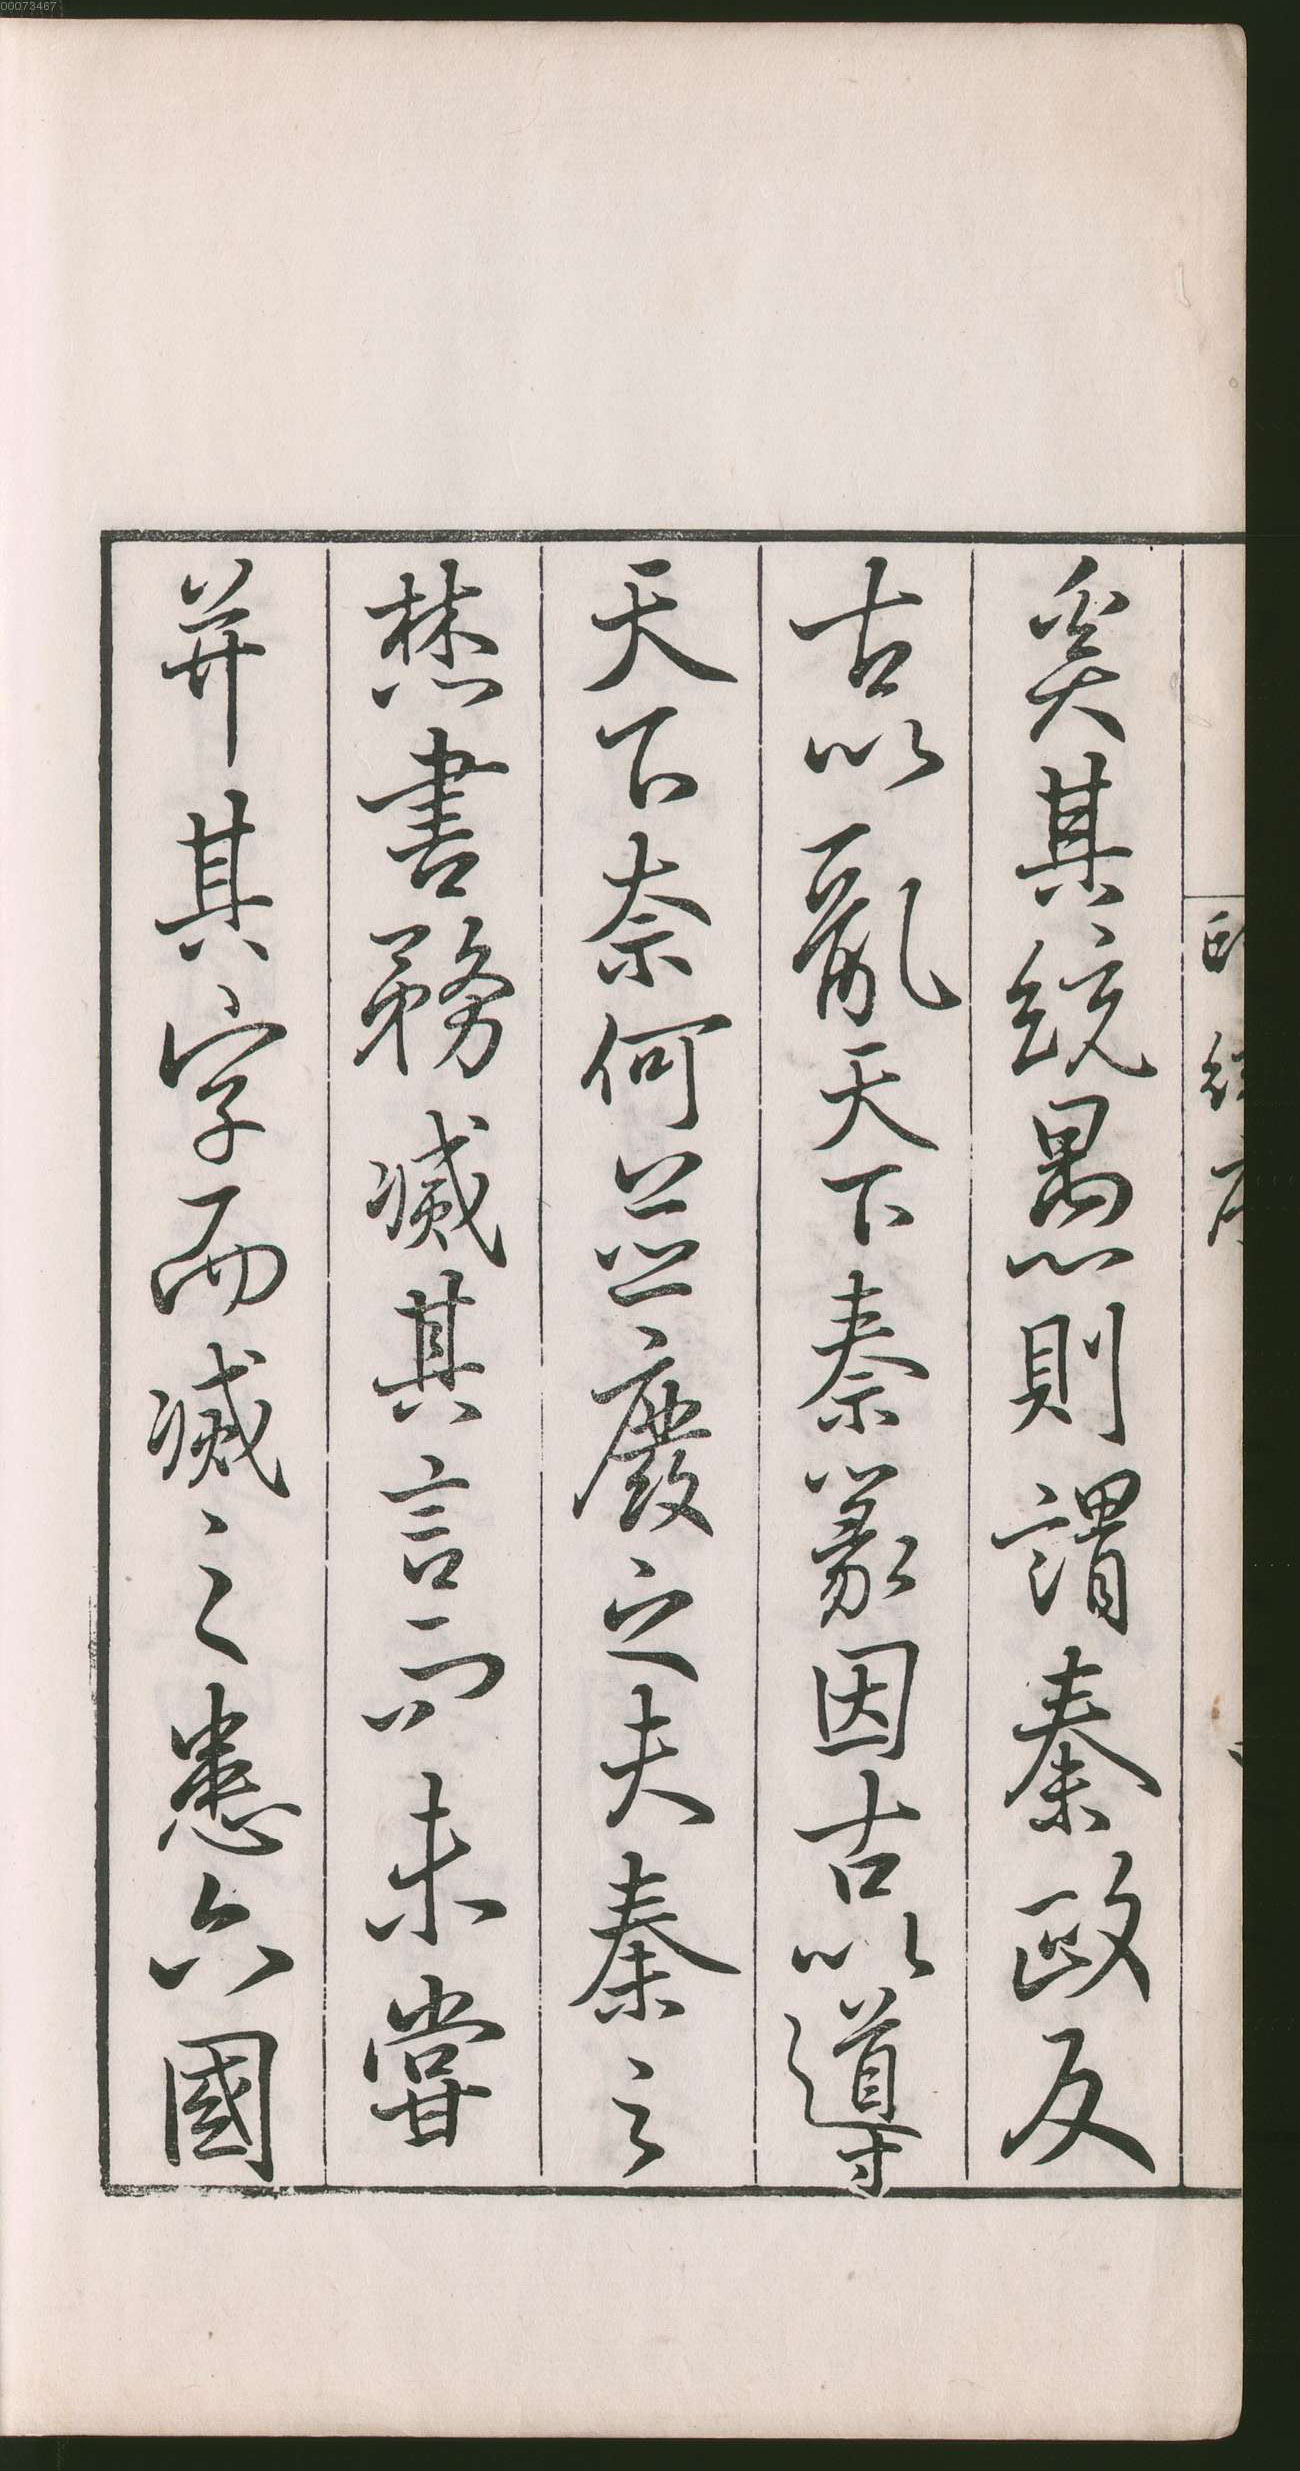 00073467
印經序
奚其統愚則謂秦政反
古以亂天下秦篆因古以導
天下奈何並廢之夫秦之
焚書務滅其言而未嘗
并其字而滅之悉六國